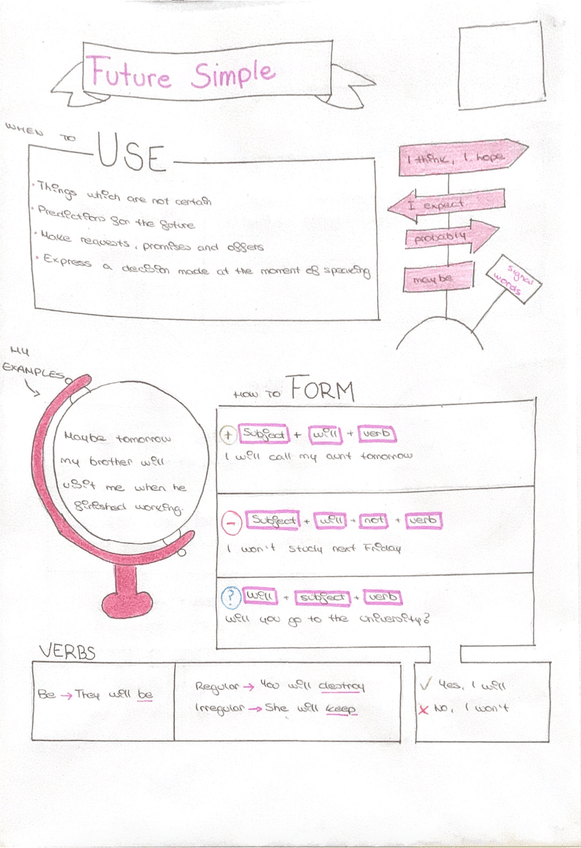 Future Simple
WHEN TO USE
· Things which are not certain
· Predictions for the future
· Make requests, promises and offers
· Express a decision made at the moment of speaking
I think, I hope
I expect
probably
maybe
signal
words
MY
EXAMPLES
Maybe tomorrow
my brother will
visit me when he
finished working.
HOW TO FORM
+ Subject + will + verb
I will call my aunt tomorrow
- Subject + will + not + verb
I won't study next Friday
? Will + subject + verb
Will you go to the university?
✓ Yes, I will
✗ No, I won't
VERBS
Be → They will be
Regular → You will destroy
Irregular → She will keep